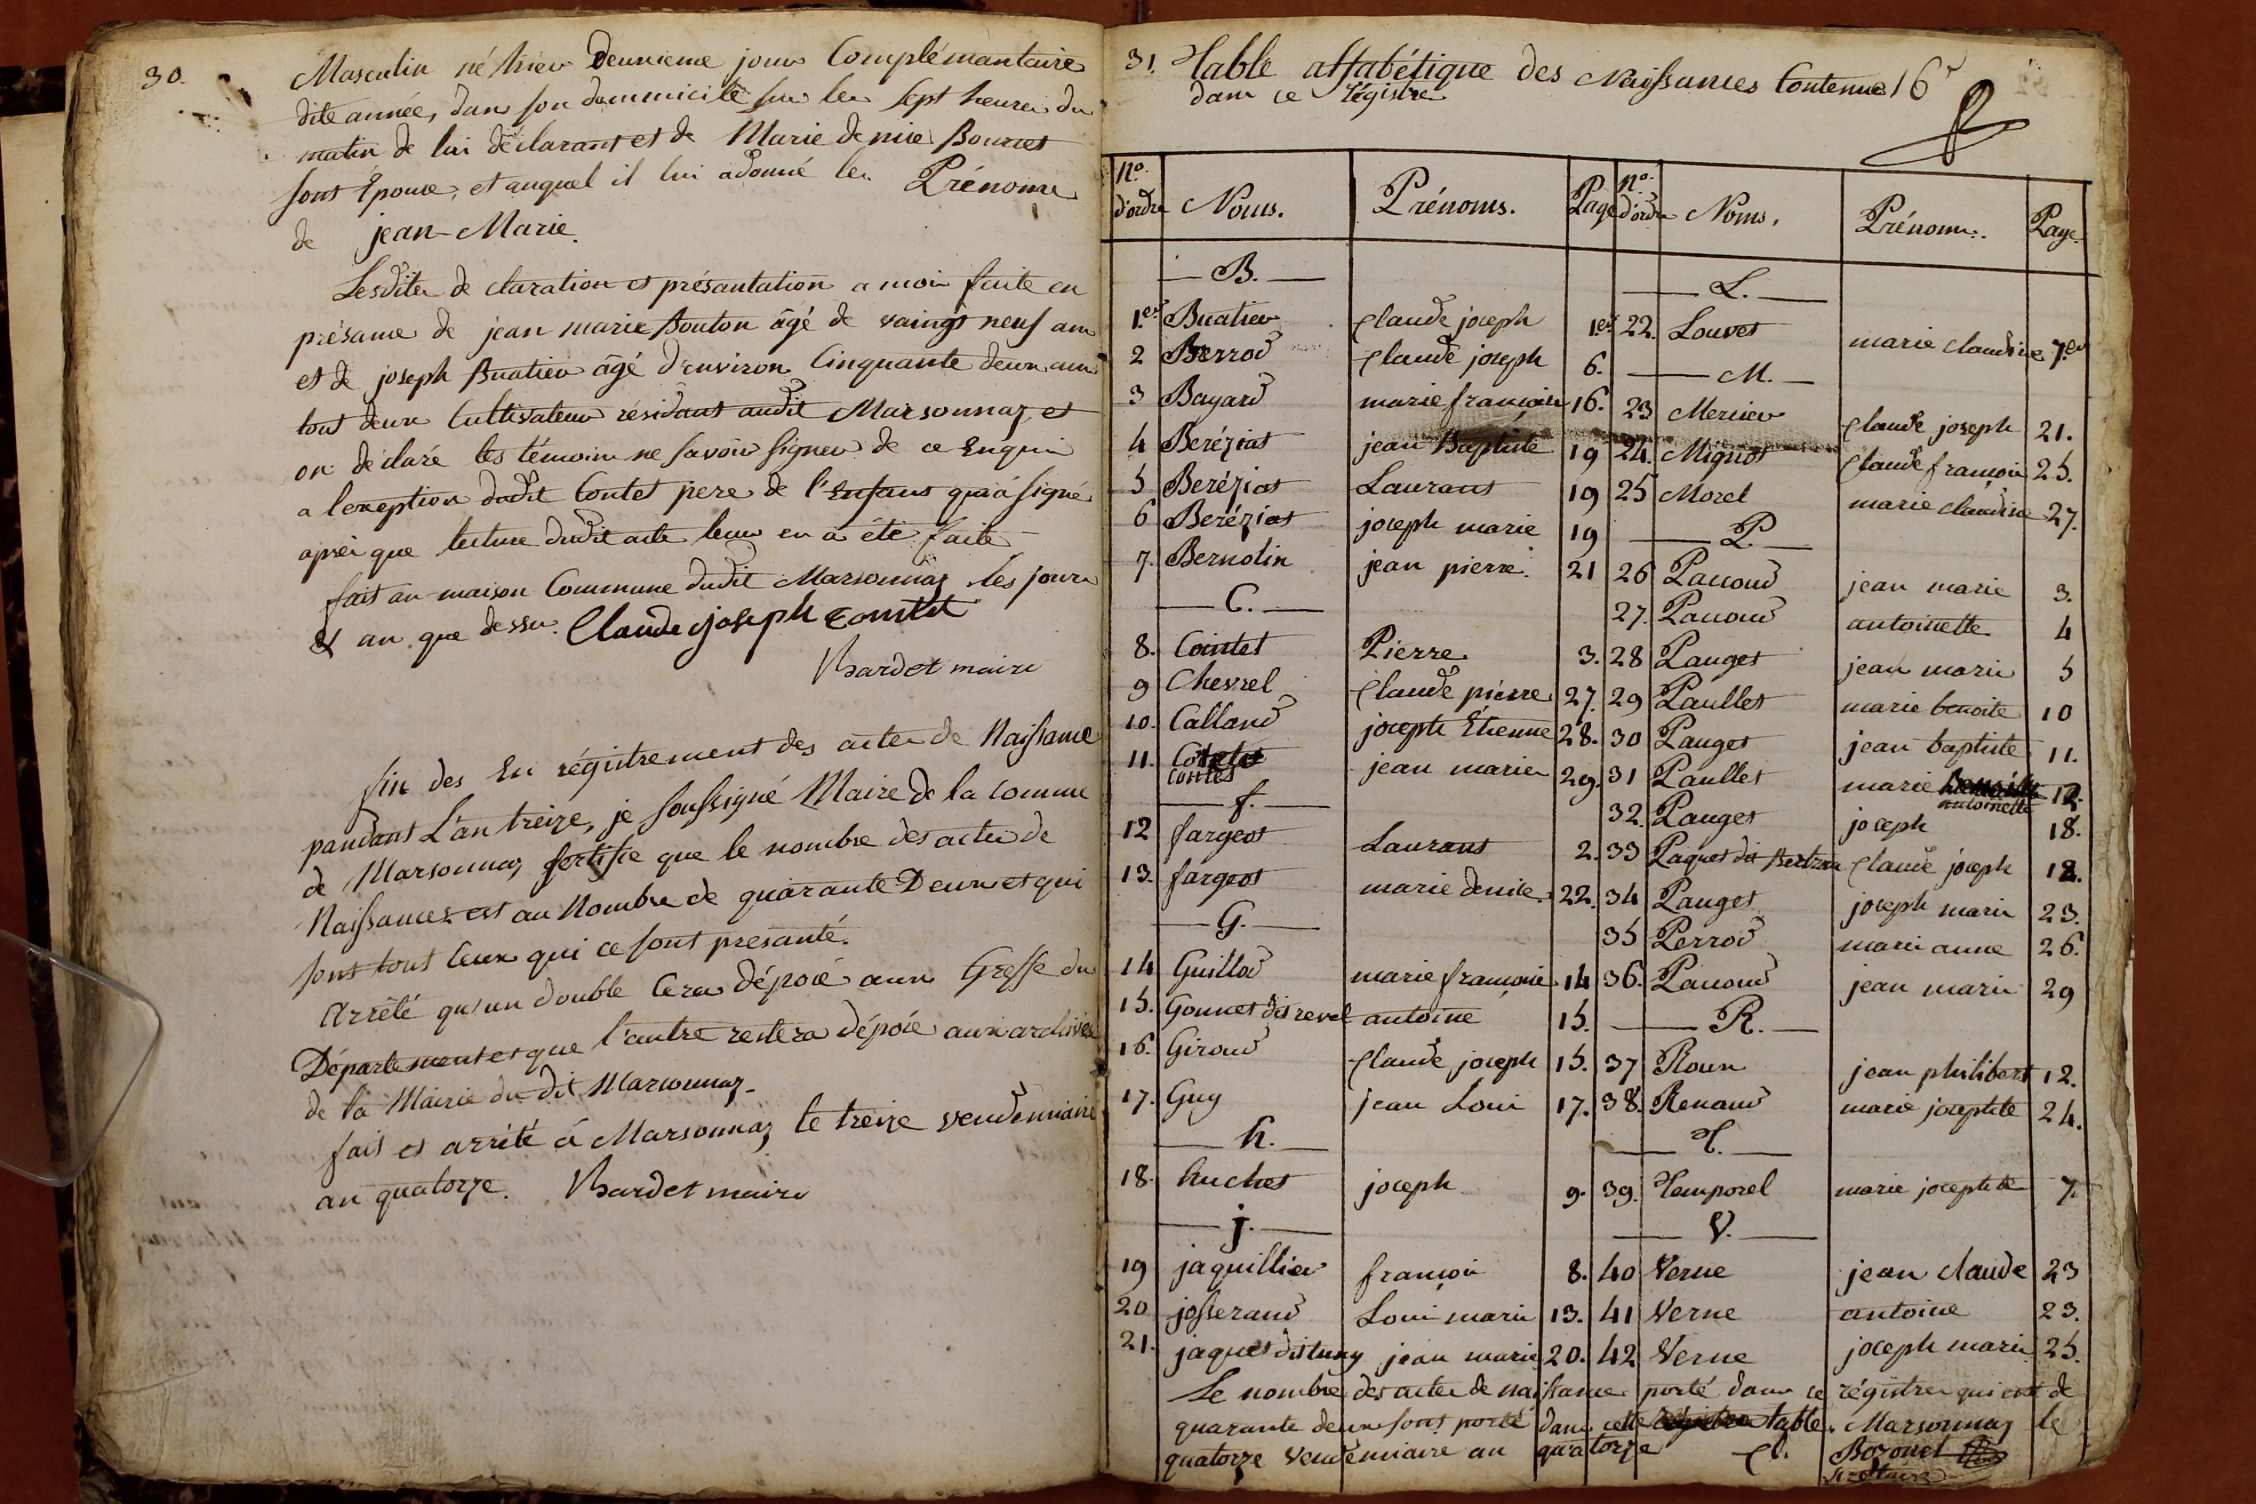 30.
Masculin né hier Deuxieme jour Complémantaire
dite année, dans son dommicile sur les sept heures du
matin de lui déclarant et de Marie denise Bourcet
sont Epouse, et auquel il lui adonné les Prénoms
de jean-Marie.
Lesdites de claration et présantation a moi faite en
présance de jean marie Bouton âgé de vaingt neuf ans
et de joseph Buatier âgé d'environ Cinquante deux ans
tout deux Cultivateur résidant audit Marsonnaz, et
on déclaré les témoins ne savoir signer de ce Enquis
a l'exeption dudit Contet pere de l'enfant qui à signé
aprés que lecture dudit acte leur en a été faite
fait en maison Commune dudit Marsonnaz les jours
& an que dessu. Claude joseph Comtet
Bardet maire
fin des En régistrement des actes de Naissance
pandant L'an treize, je soussigné Maire de la commune
de Marsonnaz, certifie que le nombre des actes de
Naissances est au Nombre de quarante Deux et qui
sont tout Ceux qui ce sont présanté.
Arrêté qu'un double Cera dépozé aux Greffe du
Département et que l'autre restera dépozé aux archives
de la Mairie du dit Marsonnaz.
fait et arrêté à Marsonnaz, le treize vendemiaire
an quatorze. Bardet maire
31. Table alfabétique des Naissances Contenue 16r
dans ce régistre
No. d'ordre Noms. Prénoms. Page
B.
1.er Buatier Claude joseph 1.er
2 Berrod Claude joseph 6.
3 Bayard marie françoise 16.
4 Beréziat jean Baptiste 19
5 Beréziat Laurant 19
6 Beréziat joseph marie 19
7. Bernolin jean pierre. 21
C.
8. Cointet Pierre 3.
9 Chevrel Claude pierre 27.
10. Calland joseph Étienne 28.
11. Contet jean marie 29.
f.
12 fargeot Laurant 2.
13. fargeot marie denise. 22.
G.
14 Guillod marie françoise 14
15. Gonnet dit revel antoine 15.
16. Giroud Claude joseph 15.
17. Guy jean Loui 17.
h.
18. huchet joseph 9.
j.
19 jaquillier françois 8.
20 josserand Loui marie 13.
21. jaquet dit tuny jean marie 20.
No. d'ordre Noms. Prénoms. Page.
L.
22. Louvet marie claudine 7.er
M.
23 Mercier Claude joseph 21.
24. Mignot Claude françois 25.
25 Morel marie claudine 27.
P.
26 Paccoud jean marie 3.
27. Paccoud antoinette 4
28 Pauget jean marie 5
29 Paullet marie benoite 10
30 Pauget jean baptiste 11.
31 Paullet marie antoinette 12.
32. Pauget joseph 18.
33 Paquet dit Bertran Claude joseph 18.
34 Pauget joseph marie 23.
35 Perrod marie anne 26.
36. Paccoud jean marie 29
R.
37 Roux jean philibert 12.
38. Renaud marie josephte 24.
T.
39. Temporel marie josephte 7.
V.
40 Verne jean claude 23
41 Verne antoine 23.
42 Verne joseph marie 25.
Le nombre des actes de naissance porté dans ce régistre qui est de
quarante deux sont porté dans cette table. Marsonnaz le
quatorze vendemiaire an quatorze Cl. Bozonet
secrétaire